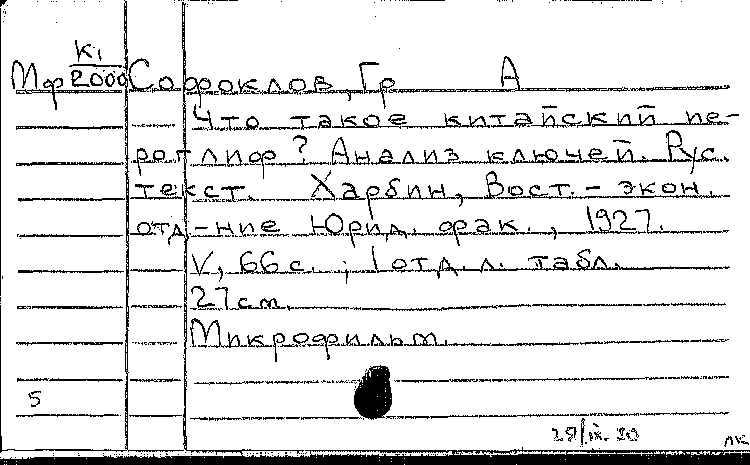 К1
Мф 2000 Софоклов, Гр А
Что такое китайский ие-
роглиф? Анализ ключей. Рус.
текст. Харбин, Вост.-экон.
отд-ние Юрид. фак., 1927.
V, 66 с.; 1 отд. л. табл.
27 см.
Микрофильм.
5
лк